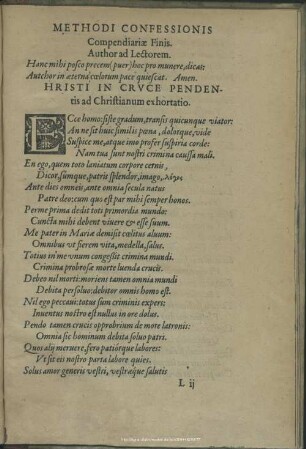 METHODI CONFESSIONIS
Compendiariæ Finis.
Author ad Lectorem.
Hanc mihi posco precem (puer) hoc pro munere, dicas:
Autchor in aeterna cælorum pace quiescat. Amen.
HRISTI IN CRVCE PENDEN-
tis ad Christianum exhortatio.
ECce homo: siste gradum, transis quicunque viator:
An ne sit huic similis pœna, dolorque, vide
Suspice me, atque imo profer suspiria corde:
Nam tua sunt nostri crimina caussa mali.
En ego, quem toto laniatum corpore cernis,
Dicor, sumque, patris splendor, imago, λόγος
Ante dies omneis, ante omnia secula natus
Patre deo: cum quo est par mihi semper honos.
Per me prima dedit toti primordia mundo:
Cuncta mihi debent vivere & esse suum.
Me pater in Mariæ demisit cœlitus aluum:
Omnibus vt fierem vita, medella, salus.
Totius in me vnum congessit crimina mundi.
Crimina probrosæ morte luenda crucis.
Debeo nil morti: moriens tamen omnia mundi
Debita persoluo: debitor omnis homo est.
Nil ego peccaui: totus sum criminis expers:
Inuentus nostro est nullus in ore dolus.
Pendo tamen crucis opprobrium de more latronis:
Omnia sic hominum debita soluo patri.
Quos alij meruere, fero patiorque labores:
Vt sit eis nostro parta labore quies.
Solus amor generis vestri, vestræque salutis
L ij